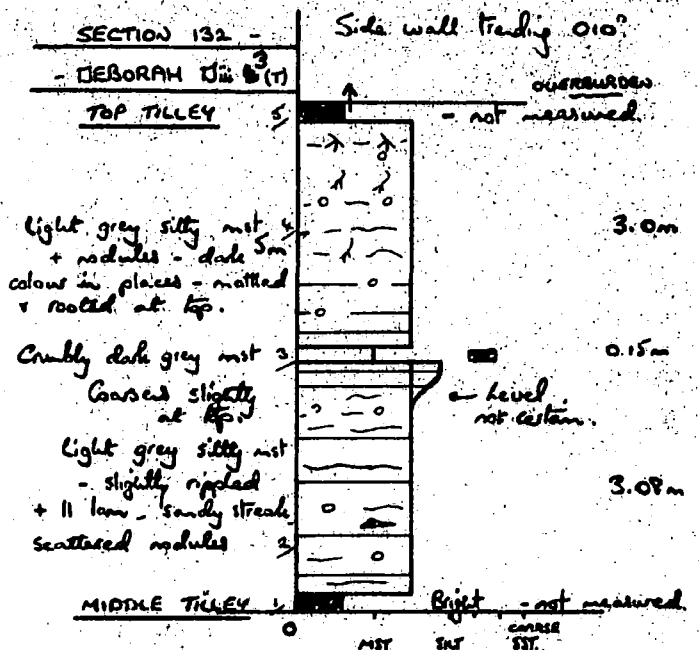 SECTION 132 -
Side wall trending 010°.
- DEBORAH (T)
OVERBURDEN
TOP TILLEY 5
- not measured.
light grey silty mst 4
+ nodules - dark 5m
3.0m
colour in places - mottled
& rooted at top.
Crumbly dark grey mst 3
0.15m
Coarsens slightly
at top.
← Level
not certain.
light grey silty mst
- slightly rippled
3.08m
+ 11 lam - sandy streak
scattered nodules 2
MIDDLE TILLEY 1
Bright - not measured.
0
MST. SILT COARSE
SST.